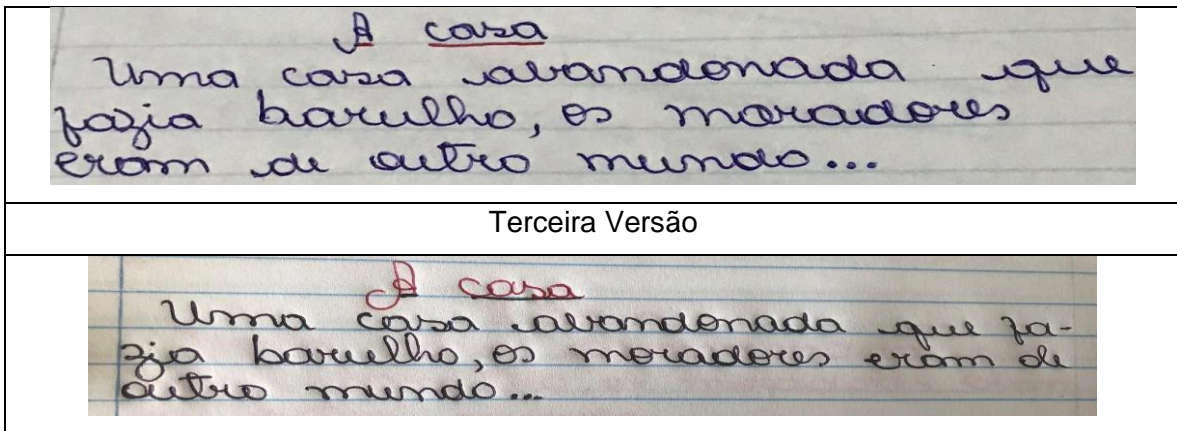 A casa
Uma casa abandonada que
fazia barulho, os moradores
eram de outro mundo...
Terceira Versão
A casa
Uma casa abandonada que fa-
zia barulho, os moradores eram de
outro mundo...